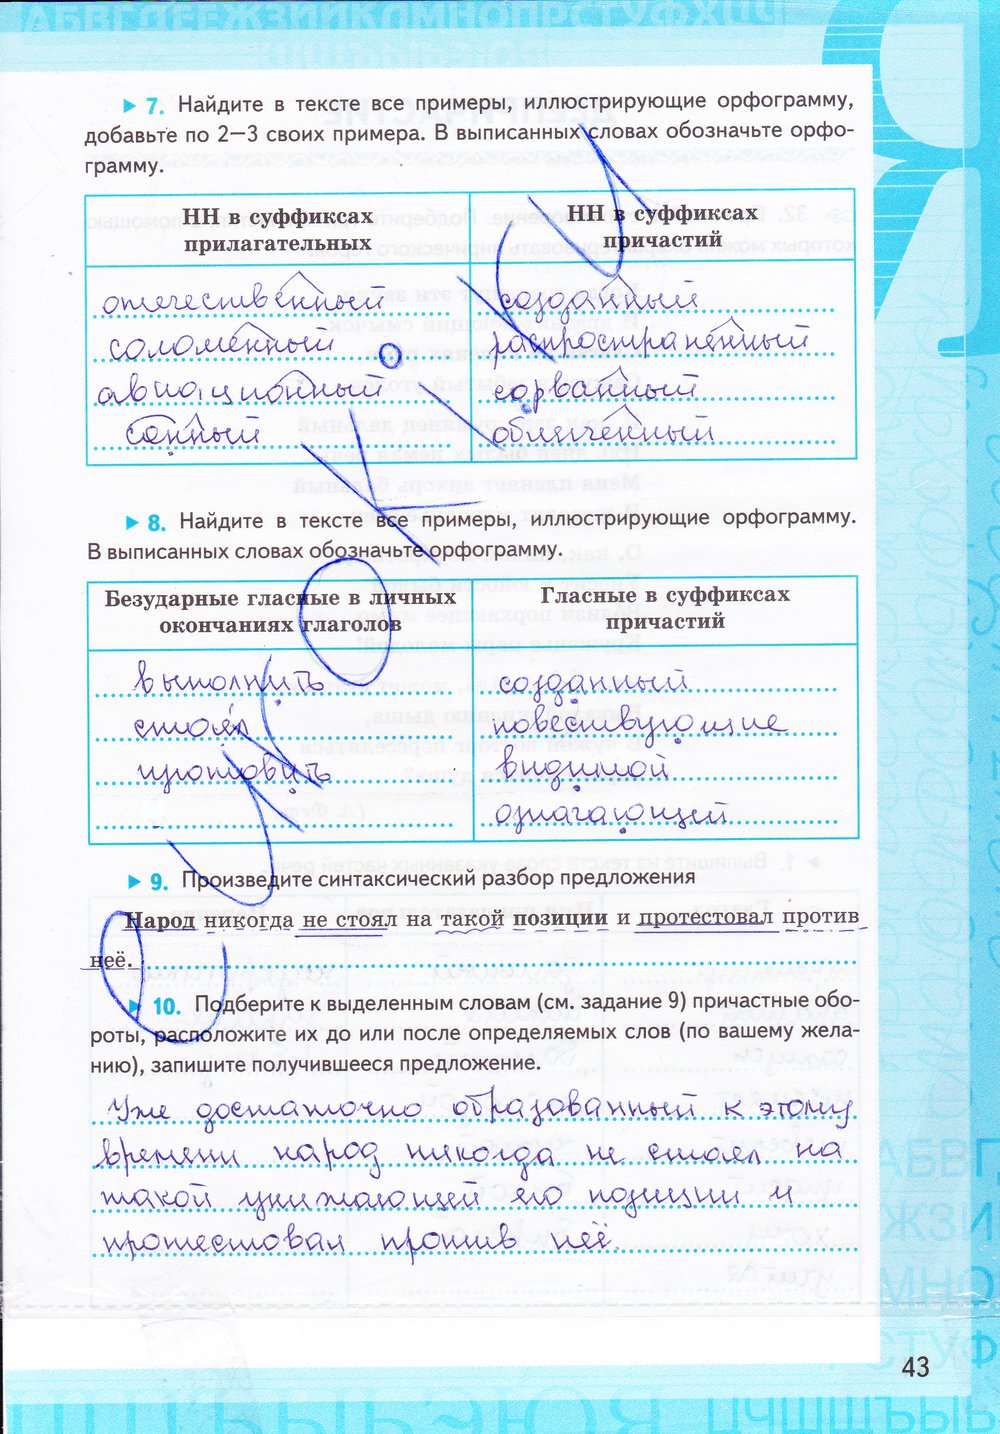 АБВГДЕЁЖЗИЙКЛМНОПРСТУФХЦЧ
7. Найдите в тексте все примеры, иллюстрирующие орфограмму,
добавьте по 2—3 своих примера. В выписанных словах обозначьте орфо-
грамму.
НН в суффиксах прилагательных
НН в суффиксах причастий
отечественный
созданный
соломенный
распространённый
авиационный
сорванный
сонный
облегчённый
8. Найдите в тексте все примеры, иллюстрирующие орфограмму.
В выписанных словах обозначьте орфограмму.
Безударные гласные в личных окончаниях глаголов
Гласные в суффиксах причастий
выполнить
созданный
стоял
повествующие
видимой
означающий
9. Произведите синтаксический разбор предложения
Народ никогда не стоял на такой позиции и протестовал против
неё.
10. Подберите к выделенным словам (см. задание 9) причастные обо-
роты, расположите их до или после определяемых слов (по вашему жела-
нию), запишите получившееся предложение.
Уже достаточно образованный к этому
времени народ никогда не стоял на
такой унижающей его позиции и
протестовал против неё.
43